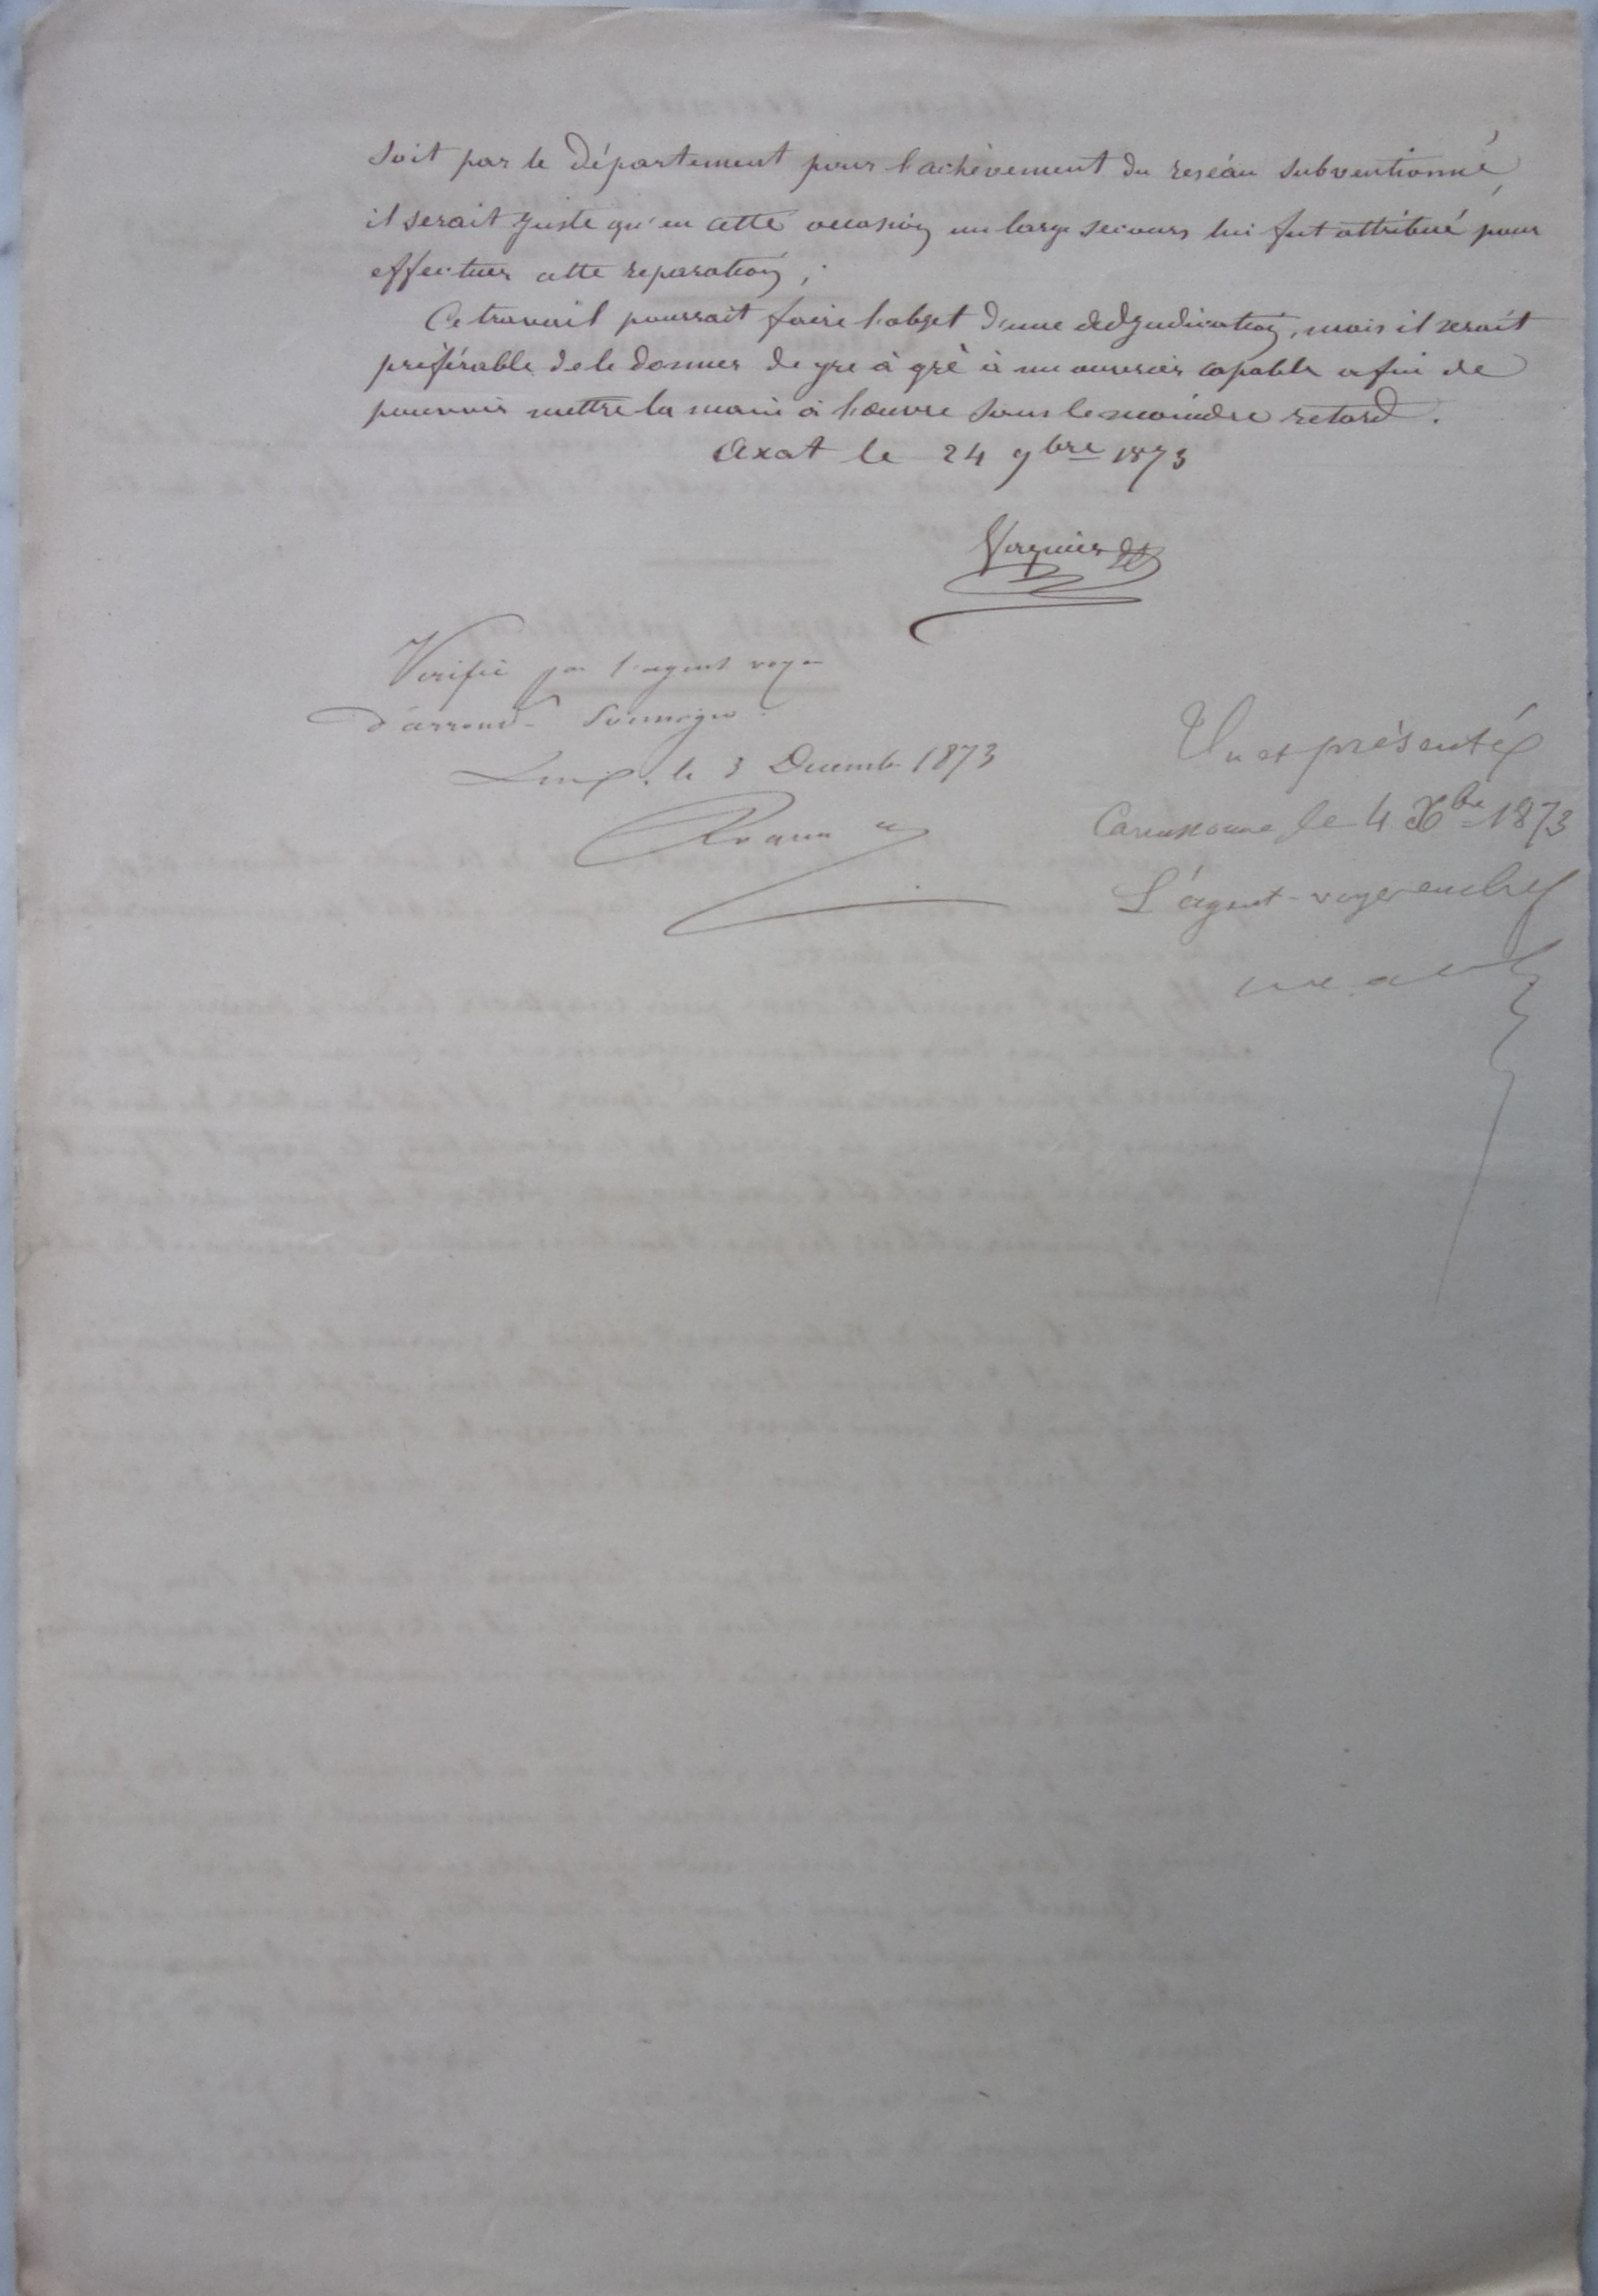 soit par le département pour l'achèvement du reseau subventionné,
il serait juste qu'en cette occasion un large secours lui fut attribué pour
effectuer cette reparation ;
Ce travail pourrait faire l'objet d'une adjudication, mais il serait
préférable de le donner de gre à gré à un ouvrier capable afin de
pouvoir mettre la main à l'œuvre sans le moindre retard.
Axat le 24 9bre 1873
Verguier
Verifié par l'agent voyer
d'arrondt Soussigné
Limoux, le 3 Decembre 1873
Vu et présenté
Carcassonne le 4 Xbre 1873
L'agent-voyer en chef